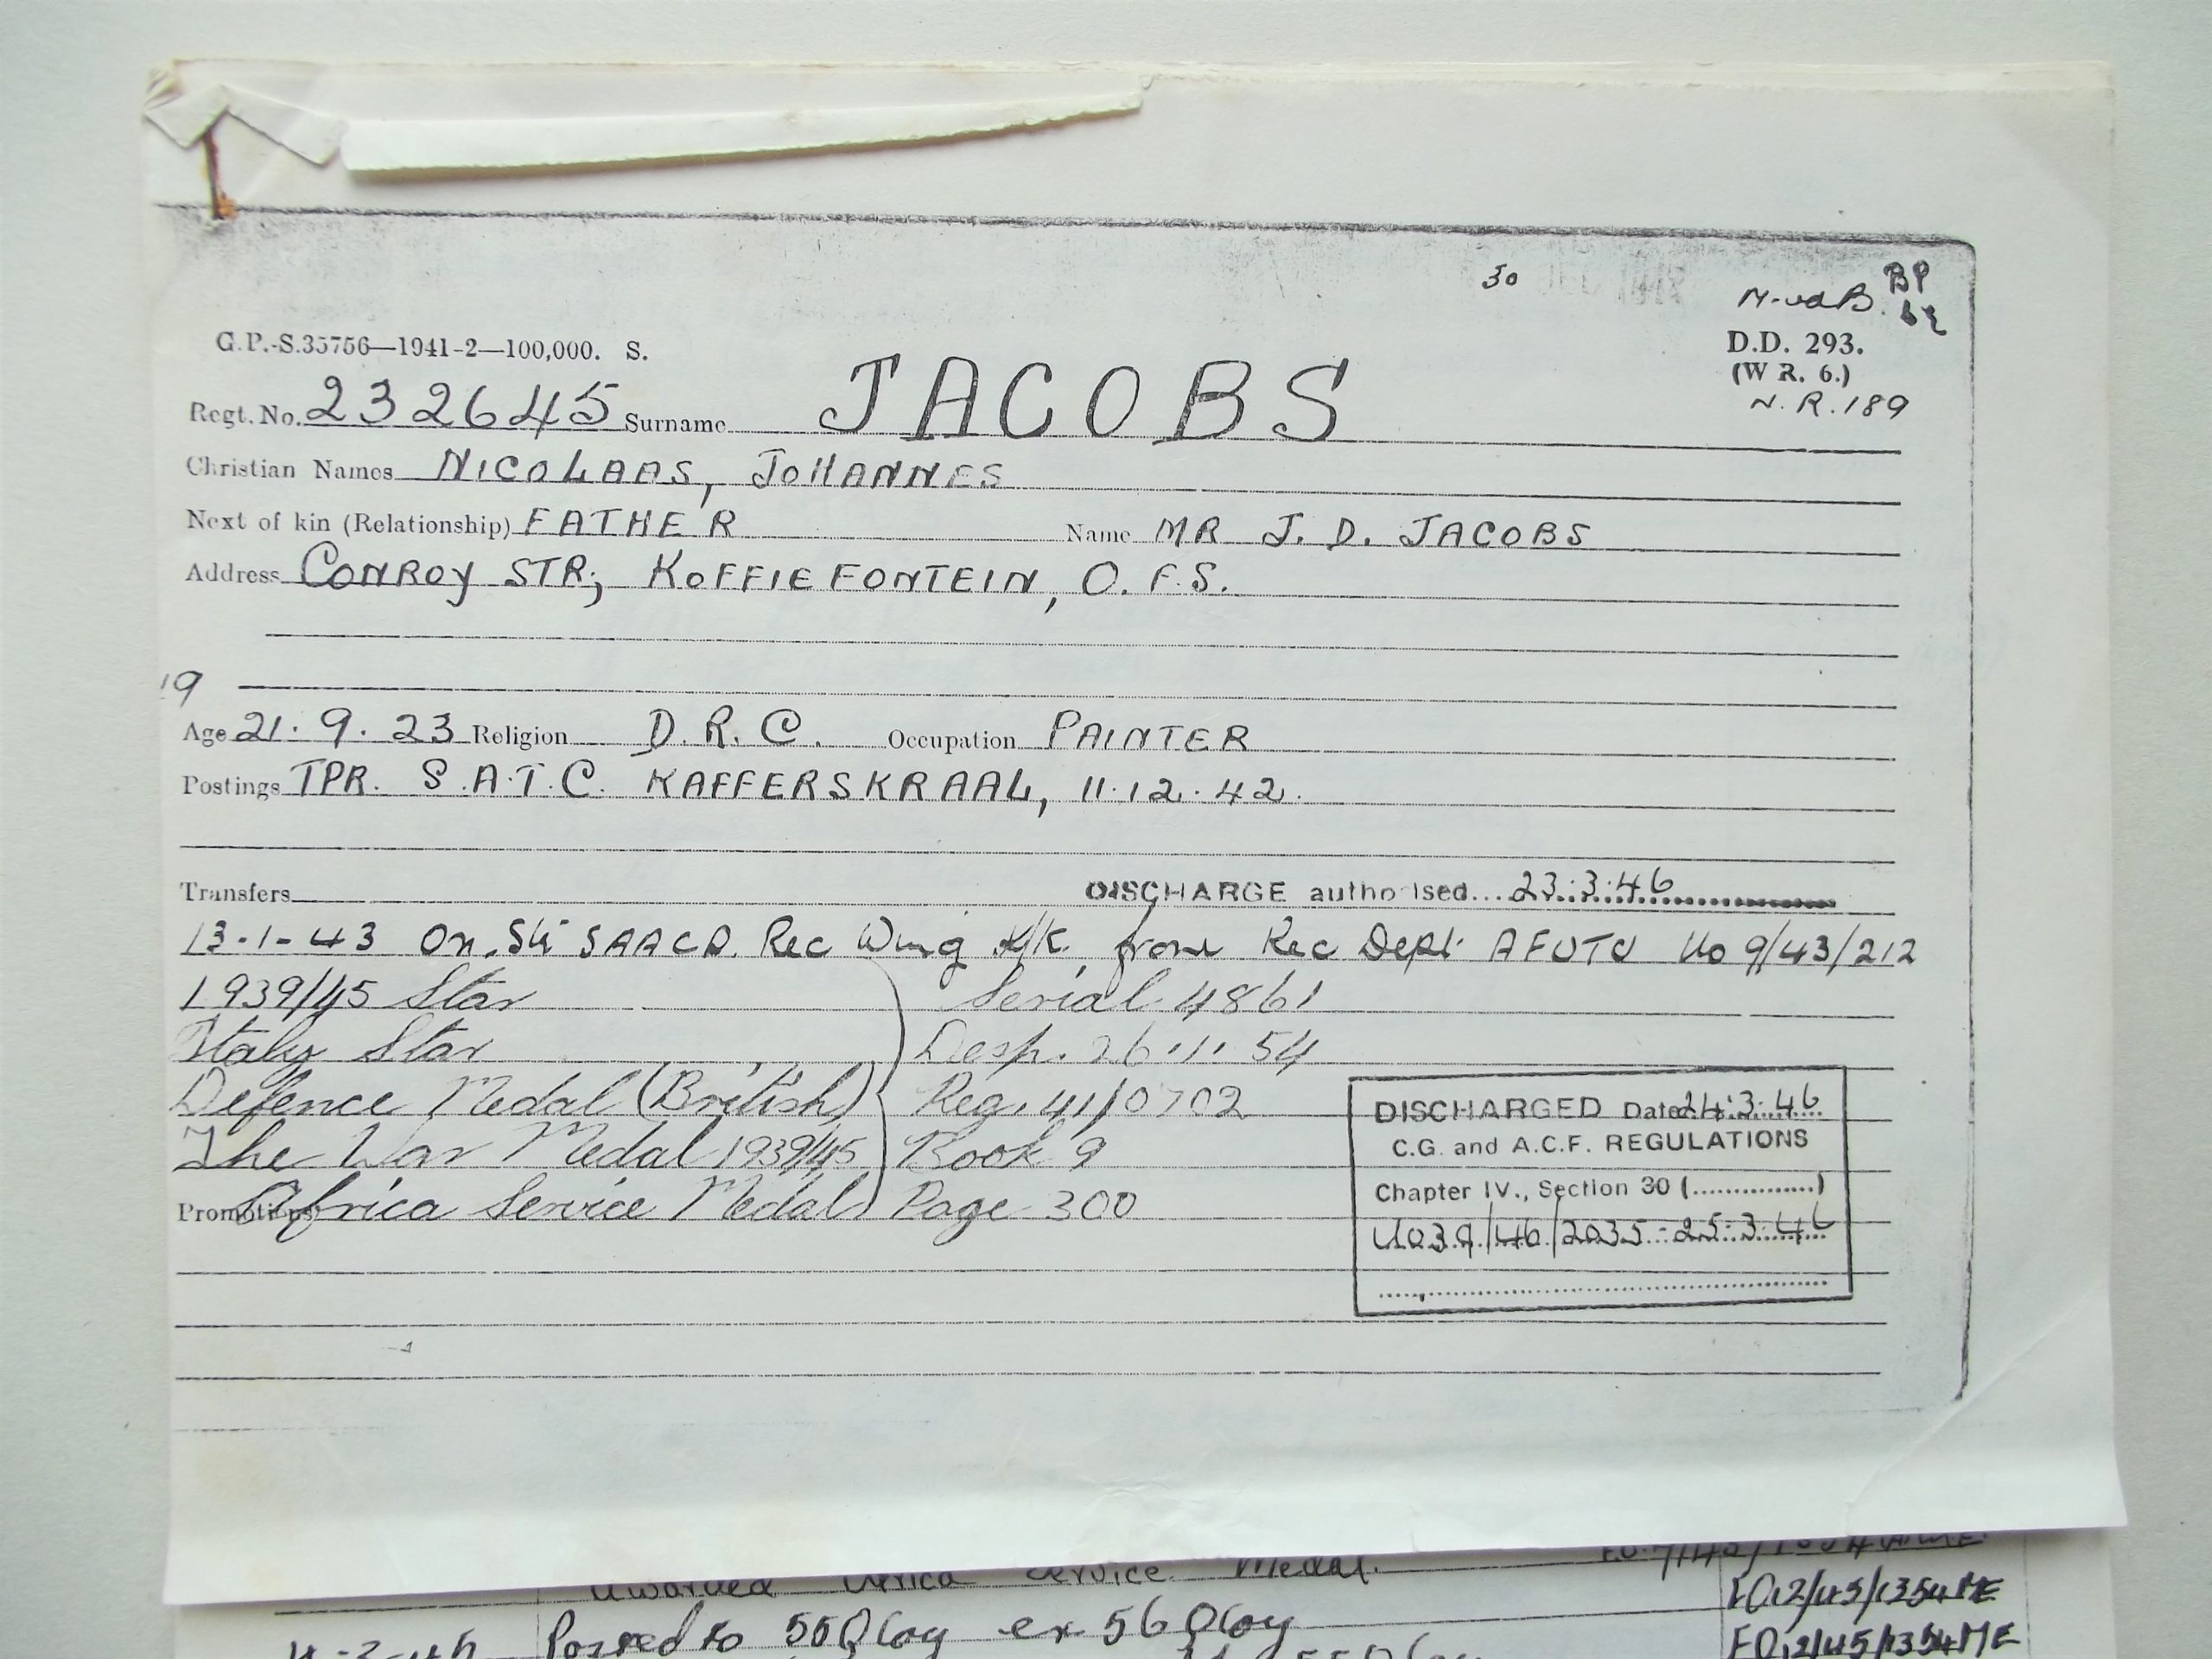 30
BP
M-vdB.
G.P.-S.35756—1941-2—100,000. S.
D.D. 293.
(W R. 6.)
N.R. 189
Regt. No. 232645 Surname JACOBS
Christian Names NICOLAAS, JOHANNES
Next of kin (Relationship) FATHER Name MR J. D. JACOBS
Address CONROY STR; KOFFIEFONTEIN, O.F.S.
19
Age 21.9.23 Religion D.R.C. Occupation PAINTER
Postings TPR. S.A.T.C. KAFFERSKRAAL, 11.12.42.
Transfers DISCHARGE authorised... 23.3.46
13-1-43 On Str SAACD. Rec Wing K/K from Rec Dept AFUTU Uo 9/43/212
1939/45 Star Serial 4861
Italy Star Desp. 26.11.54
Defence Medal (British) Reg. 41/0702
The War Medal 1939/45 Book 9
Promotions Africa Service Medal Page 300
DISCHARGED Date 24.3.46
C.G. and A.C.F. REGULATIONS
Chapter IV., Section 30 (...............)
Uo39/46/2035-25.3.46
awarded Africa Service Medal.
Posted to 55 ex 56
FO12/45/1354ME
FO12/45/1354ME